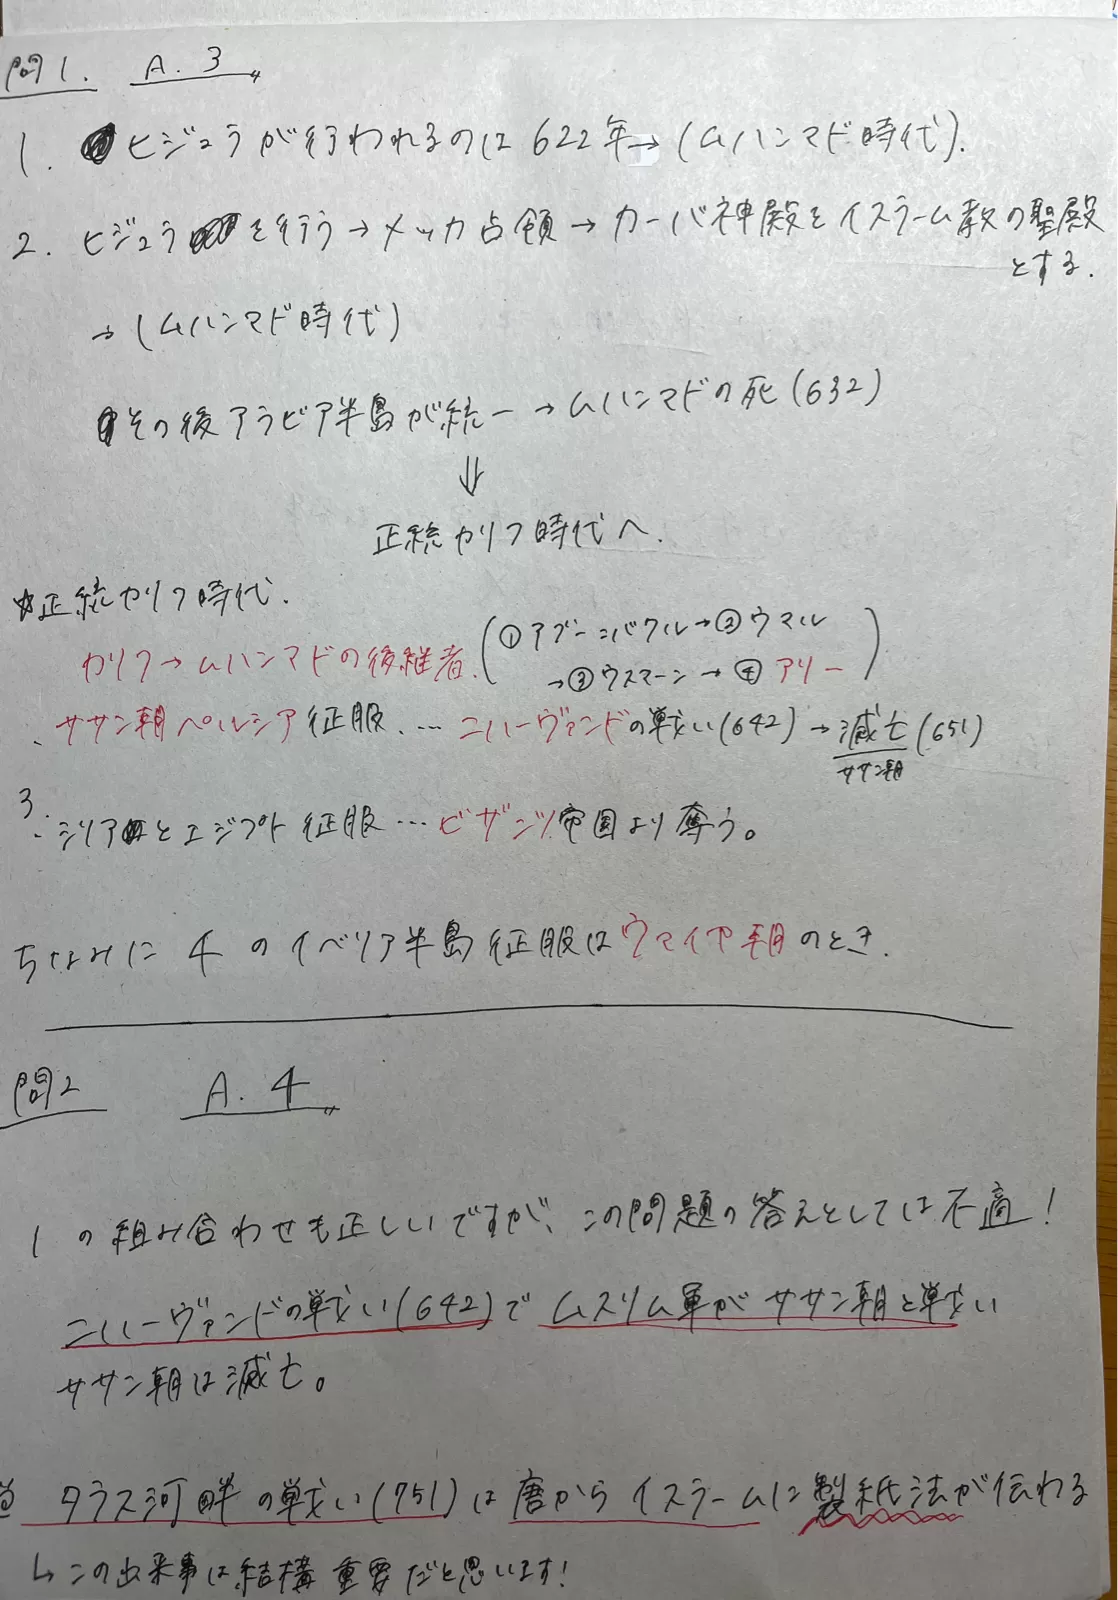 問1. A.3
1. ヒジュラが行われるのは622年→(ムハンマド時代).
2. ヒジュラを行う→メッカ占領→カーバ神殿をイスラーム教の聖殿
とする.
→(ムハンマド時代)
その後アラビア半島が統一→ムハンマドの死(632)
⇓
正統カリフ時代へ.
☆正統カリフ時代.
カリフ→ムハンマドの後継者.(①アブー=バクル→②ウマル
→③ウスマーン→④アリー)
・ササン朝ペルシア征服.…ニハーヴァンドの戦い(642)→滅亡(651)
ササン朝
3.
・シリアとエジプト征服…ビザンツ帝国より奪う。
ちなみに4のイベリア半島征服はウマイヤ朝のとき.
問2 A.4
1の組み合わせも正しいですが、この問題の答えとしては不適!
ニハーヴァンドの戦い(642)でムスリム軍がササン朝と戦い
ササン朝は滅亡。
タラス河畔の戦い(751)は唐からイスラームに製紙法が伝わる
↳この出来事は結構重要だと思います!